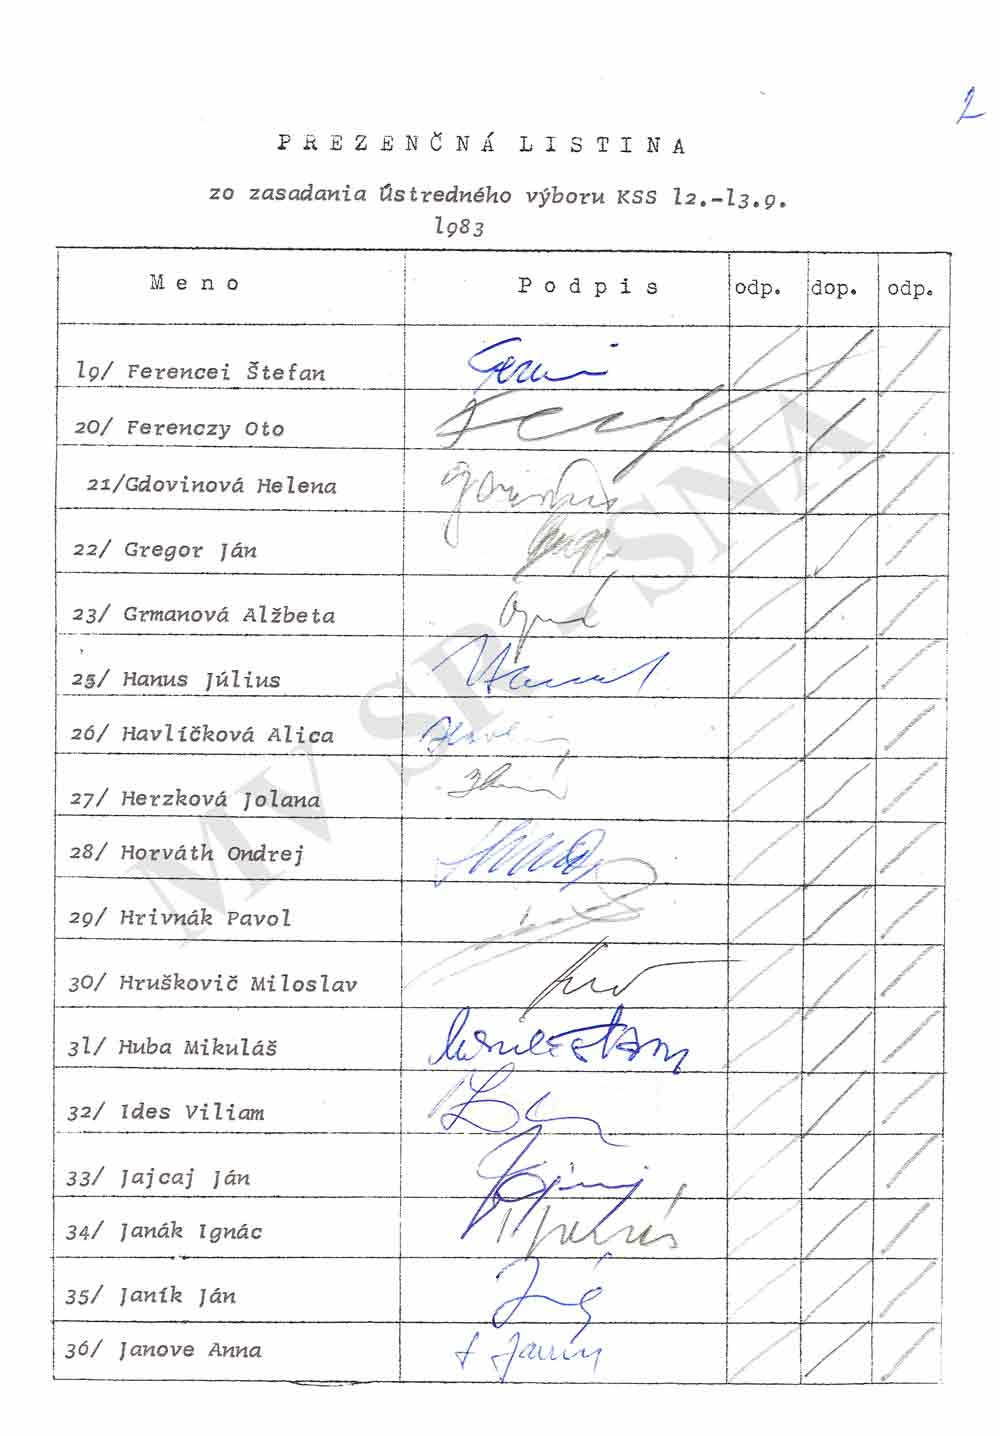 2
PREZENČNÁ LISTINA
zo zasadania Ústredného výboru KSS 12.-13.9.
1983
Meno Podpis odp. dop. odp.
19/ Ferencei Štefan
20/ Ferenczy Oto
21/Gdovinová Helena
22/ Gregor Ján
23/ Grmanová Alžbeta
25/ Hanus Július
26/ Havlíčková Alica
27/ Herzková Jolana
28/ Horváth Ondrej
29/ Hrivnák Pavol
30/ Hruškovič Miloslav
31/ Huba Mikuláš
32/ Ides Viliam
33/ Jajcaj Ján
34/ Janák Ignác
35/ Janík Ján
36/ Janove Anna
MV SR - SNA